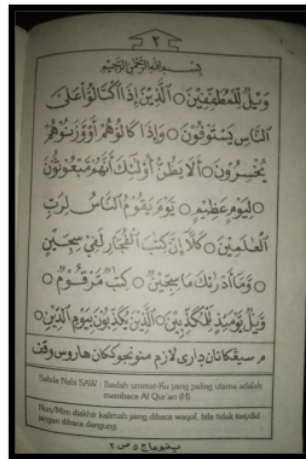 ٢
بِسْمِ اللّٰهِ الرَّحْمٰنِ الرَّحِيْمِ
وَيْلٌ لِّلْمُطَفِّفِيْنَ ○ الَّذِيْنَ إِذَا اكْتَالُوْا عَلَى
النَّاسِ يَسْتَوْفُوْنَ ○ وَإِذَا كَالُوْهُمْ أَوْ وَّزَنُوْهُمْ
يُخْسِرُوْنَ ○ أَلَا يَظُنُّ أُولٰٓئِكَ أَنَّهُمْ مَّبْعُوْثُوْنَ
○ لِيَوْمٍ عَظِيْمٍ ○ يَوْمَ يَقُوْمُ النَّاسُ لِرَبِّ
الْعٰلَمِيْنَ ○ كَلَّا إِنَّ كِتٰبَ الْفُجَّارِ لَفِيْ سِجِّيْنٍ
○ وَمَا أَدْرٰىكَ مَا سِجِّيْنٌ ○ كِتٰبٌ مَّرْقُوْمٌ ○
وَيْلٌ يَّوْمَئِذٍ لِّلْمُكَذِّبِيْنَ ○ الَّذِيْنَ يُكَذِّبُوْنَ بِيَوْمِ الدِّيْنِ ○
م سڠكتان داري لازم منونجوككن هاروس وقف
Sabda Nabi SAW : Ibadah ummat-Ku yang paling utama adalah
membaca Al Qur'an (H)
Nun/Mim diakhir kalimah yang dibaca waqof, bila tidak tasydid
jangan dibaca dengung.